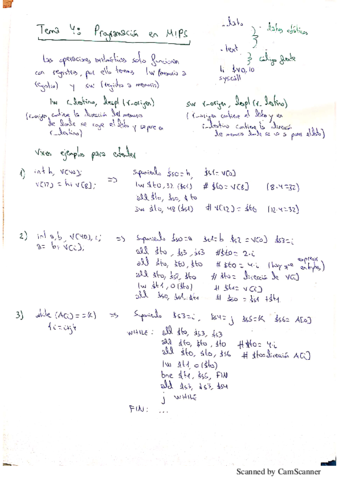 Tema 4: Programación en MIPS
.data
datos estáticos
.text
código fuente
li $v0,10
syscall
Las operaciones aritméticas solo funcionan
con registros, por ello tenemos lw (memoria a
registro) y sw (registro a memoria)
lw r_destino, despl (r_origen)
sw r_origen, despl (r_destino)
(r_origen contiene la dirección de memoria
de donde se coge el dato y se pone en
r_destino)
(r_origen contiene el dato y
r_destino contiene la dirección
de memoria donde se va a
Unos ejemplos para entender
1) int h, v[40]; ⇒ Suponiendo $s0=h, $s1=v[0]
v[12]=h+v[8]; lw $t0,32($s1) # $t0=v[8] (8·4=32)
add $t0, $s0, $t0
sw $t0, 48($s1) # v[12]=$t0 (12·4=48)
2) int a,b, v[40], i; ⇒ Suponiendo $s0=a $s1=b $s2=v[0] $s3=i
a=b+v[i]; add $t0, $s3, $s3 # $t0= 2·i
add $t0, $t0, $t0 # $t0= 4·i
add $t0, $t0, $s2 # $t0= dirección de v[i]
lw $t1, 0($t0) # $t1= v[i]
add $s0, $s1, $t1 # $s0= $s1+$t1
3) while (A[i]==k) ⇒ Suponiendo $s3=i, $s4=j $s5=k $s6=A[0]
i=i+j; WHILE: add $t0, $s3, $s3
add $t0, $t0, $t0 # $t0= 4i
add $t0, $t0, $s6 # $t0=dirección A[i]
lw $t1, 0($t0)
bne $t1, $s5, FIN
add $s3, $s3, $s4
j WHILE
FIN: ...
Scanned by CamScanner